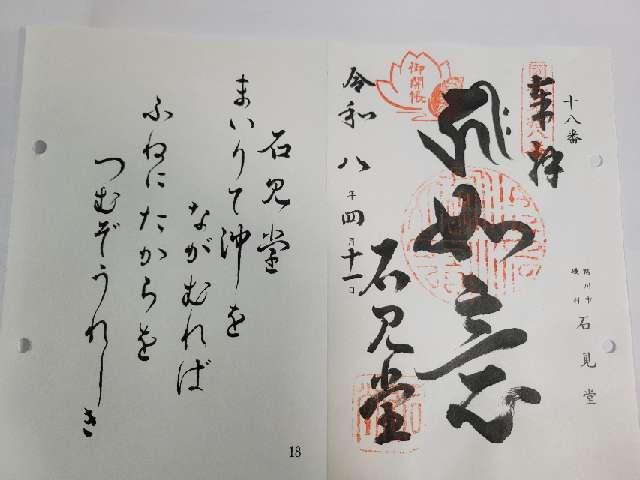 十八番
鴨川市
磯村
石見堂
奉拝
如意
石見堂
御開帳
令和八年四月十一日
石見堂
まいりて沖を
ながむれば
ふねにたからを
つむぞうれしき
18